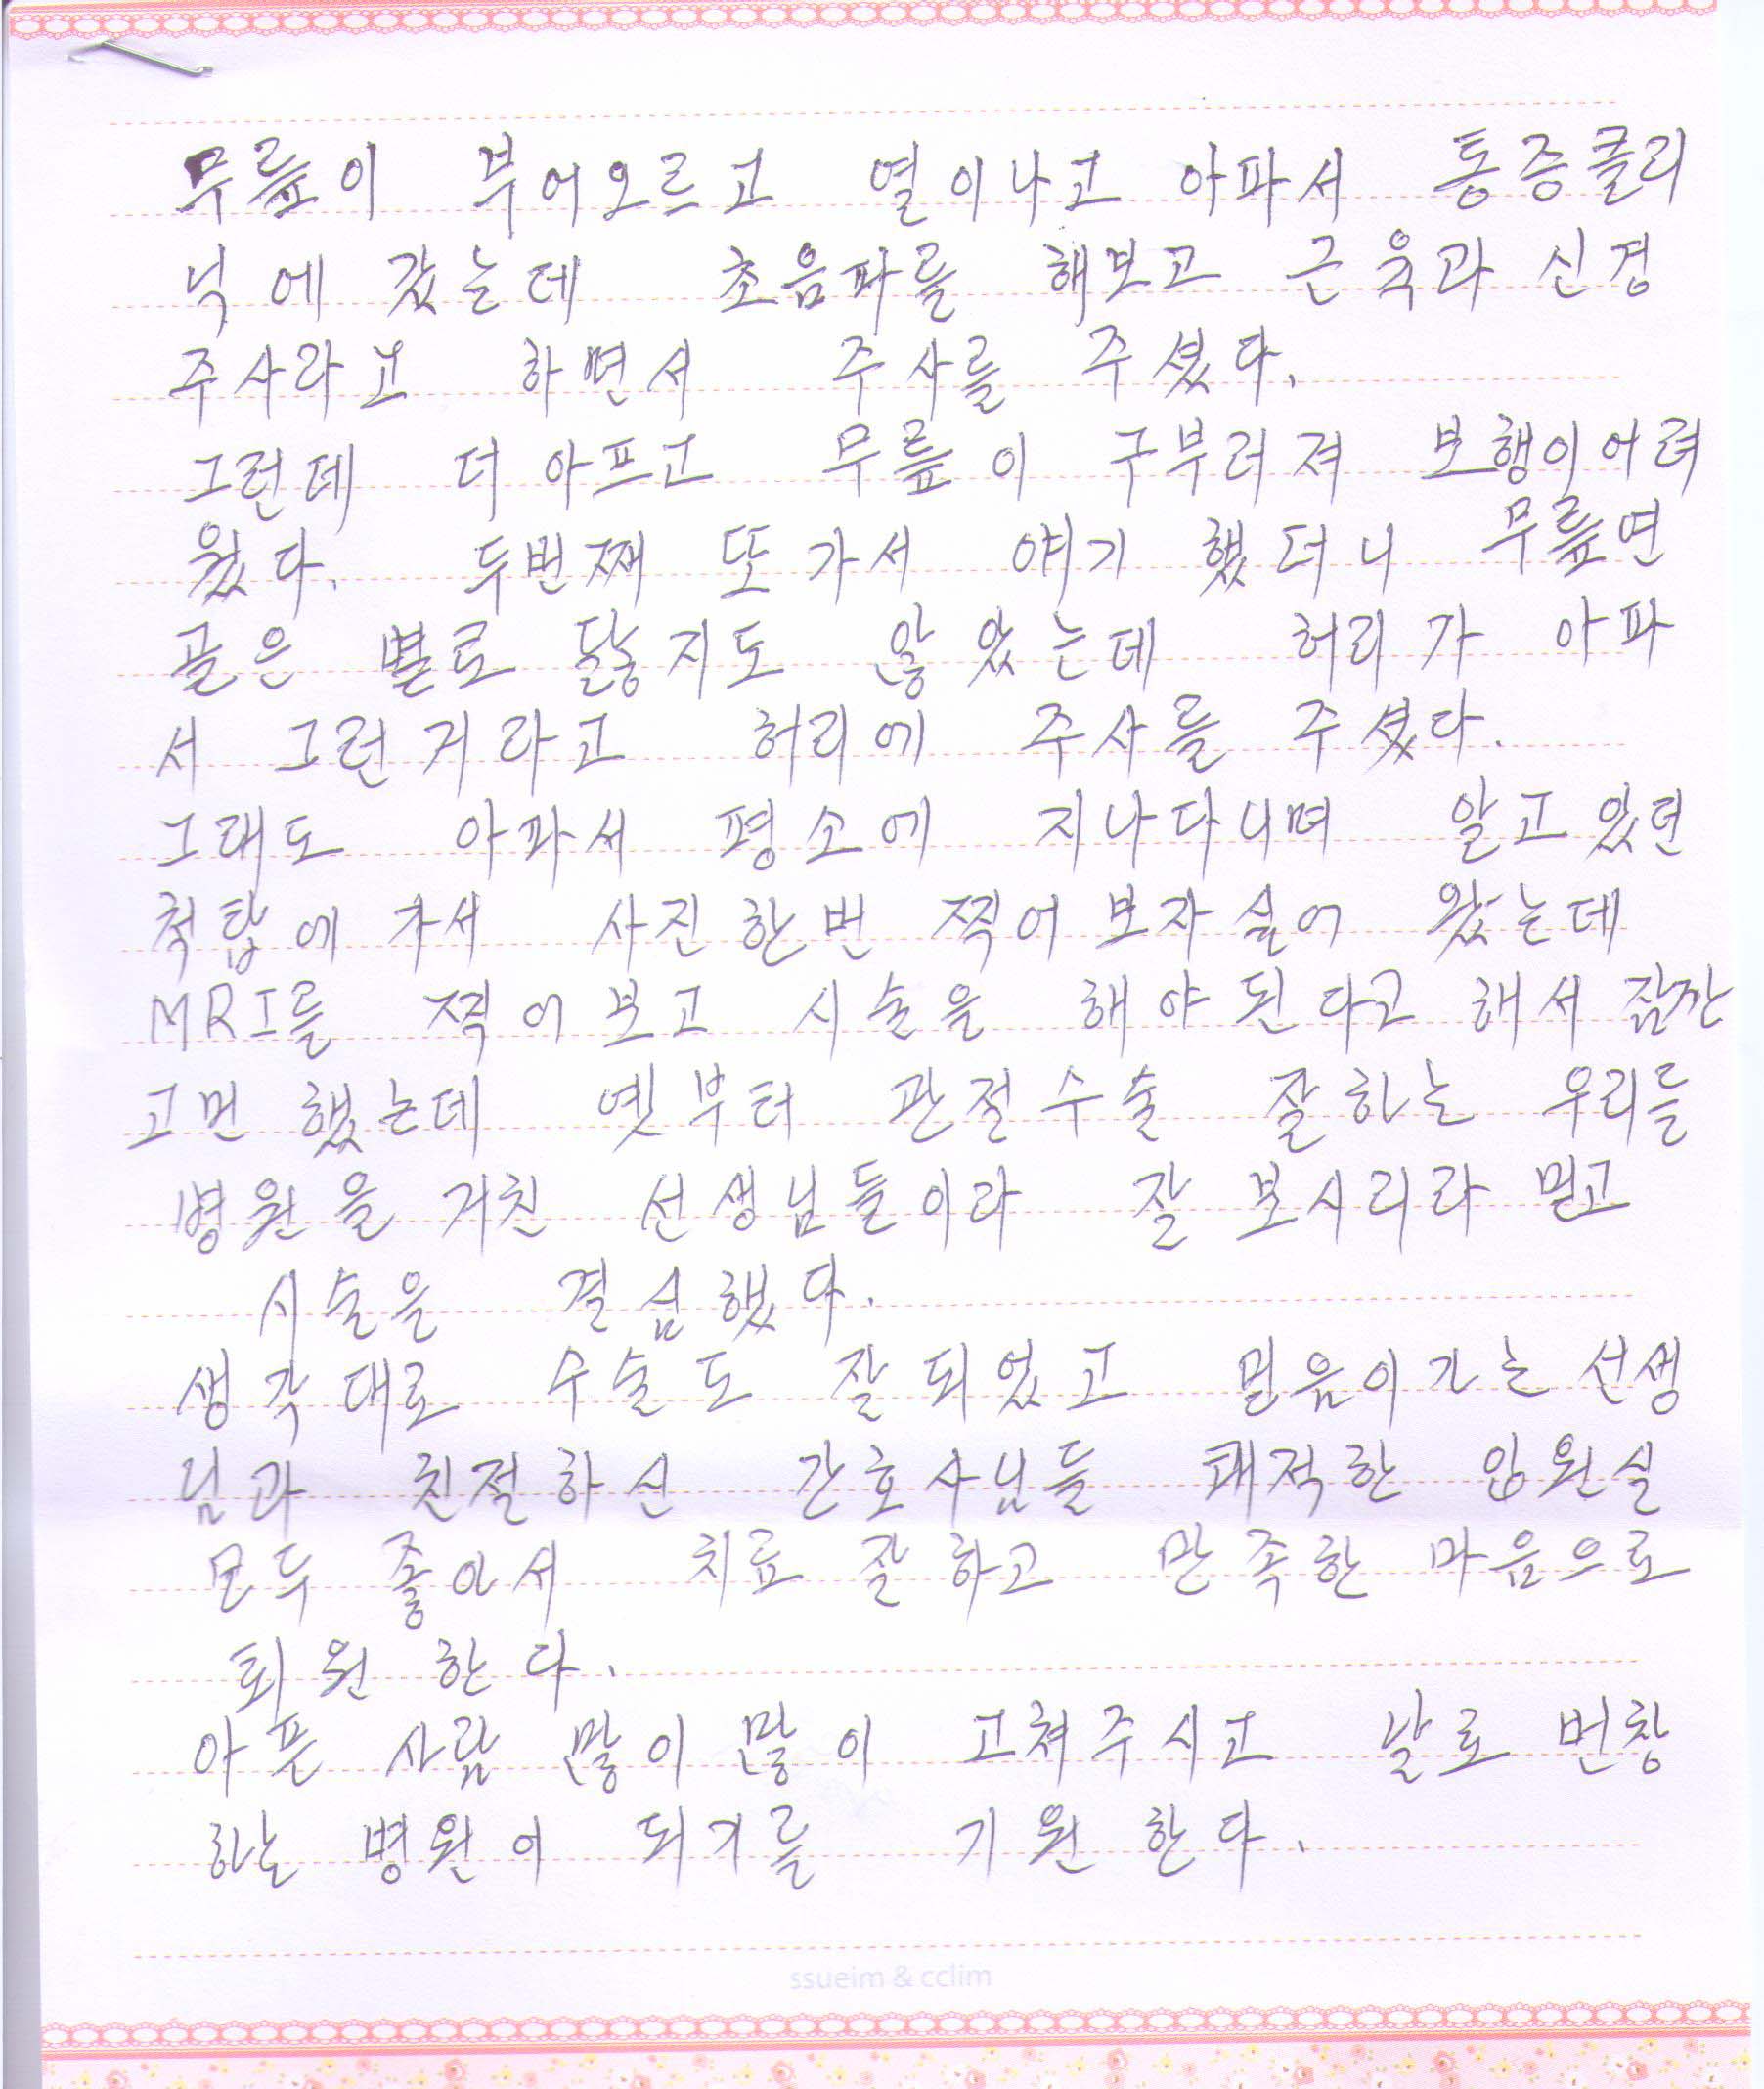 무릎이 부어오르고 열이나고 아파서 통증클리
닉에 갔는데 초음파를 해보고 근육과 신경
주사라고 하면서 주사를 주셨다.
그런데 더 아프고 무릎이 구부러져 보행이어려
웠다. 두번째 또 가서 얘기 했더니 무릎연
골은 별로 닳지도 않았는데 허리가 아파
서 그런거라고 허리에 주사를 주셨다.
그래도 아파서 평소에 지나다니며 알고있던
척탑에 가서 사진한번 찍어보자싶어 왔는데
MRI를 찍어보고 시술을 해야된다고 해서 잠깐
고민 했는데 옛부터 관절수술 잘하는 우리들
병원을 거친 선생님들이라 잘 보시리라 믿고
시술을 결심했다.
생각대로 수술도 잘되었고 믿음이가는 선생
님과 친절하신 간호사님들 쾌적한 입원실
모두 좋아서 치료 잘하고 만족한 마음으로
퇴원한다.
아픈 사람 많이 많이 고쳐주시고 날로 번창
하는 병원이 되기를 기원한다.
ssueim & cclim